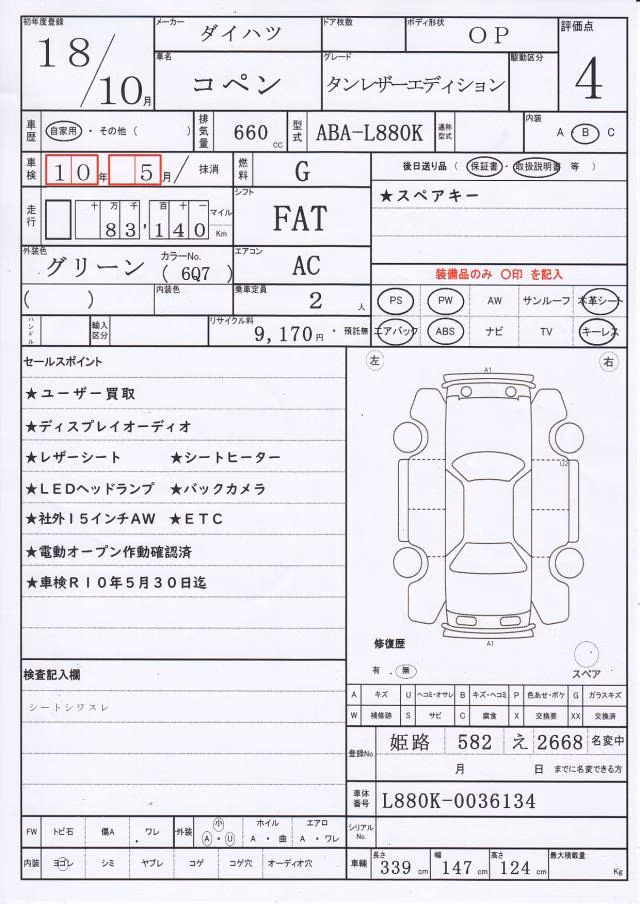 初年度登録 メーカー ダイハツ ドア枚数 ボディ形状 OP 評価点
18/10月 車名 コペン グレード タンレザーエディション 駆動区分 4
車歴 自家用・その他( ) 排気量 660cc 型式 ABA-L880K 通称型式 内装 A・B C
車検 10年 5月/ 抹消 燃料 G 後日送り品( 保証書・取扱説明書 等 )
走行 十万千百十一 83,140 マイル Km シフト FAT ★スペアキー
外装色 グリーン カラーNo. (6Q7) エアコン AC 装備品のみ 〇印 を記入
( ) 内装色 乗車定員 2人 PS PW AW サンルーフ 本革シート
ハンドル 輸入区分 リサイクル料 9,170円・預託無 エアバック ABS ナビ TV キーレス
セールスポイント 左 右
A1
★ユーザー買取
★ディスプレイオーディオ
★レザーシート ★シートヒーター
U2
★LEDヘッドランプ ★バックカメラ
★社外15インチAW ★ETC
★電動オープン作動確認済
★車検R10年5月30日迄
A1
修復歴
有 . 無 スペア
検査記入欄
シートシワスレ
A キズ U ヘコミ・オサレ B キズ・ヘコミ P 色あせ・ボケ G ガラスキズ
W 補修跡 S サビ C 腐食 X 交換要 XX 交換済
登録No. 姫路 582 え 2668 名変中
月 日 までに名変できる方
車体番号 L880K-0036134
FW トビ石 傷A ワレ 外装 小 A・U ホイル A・曲 エアロ A・ワレ シリアルNo.
内装 ヨゴレ シミ ヤブレ コゲ コゲ穴 オーディオ穴 車輌 長さ 339cm 幅 147cm 高さ 124cm 最大積載量 Kg